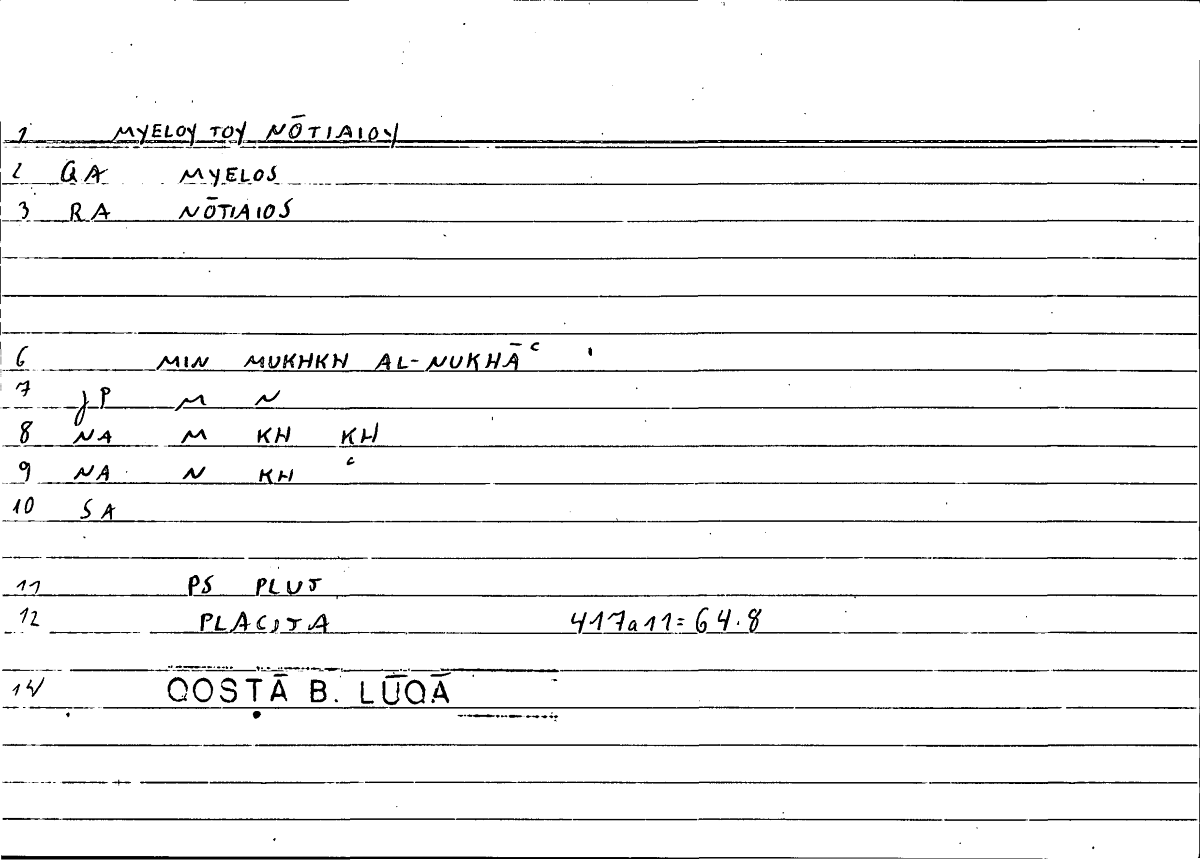 1 MYELOY TOY NŌTIAIOY
2 QA MYELOS
3 RA NŌTIAIOS
6 MIN MUKHKH AL-NUKHĀʿ
7 JP M N
8 NA M KH KH
9 NA N KH ʿ
10 SA
11 PS PLUT
12 PLACITA 417a11=64.8
14 QOSṬĀ B. LŪQĀ